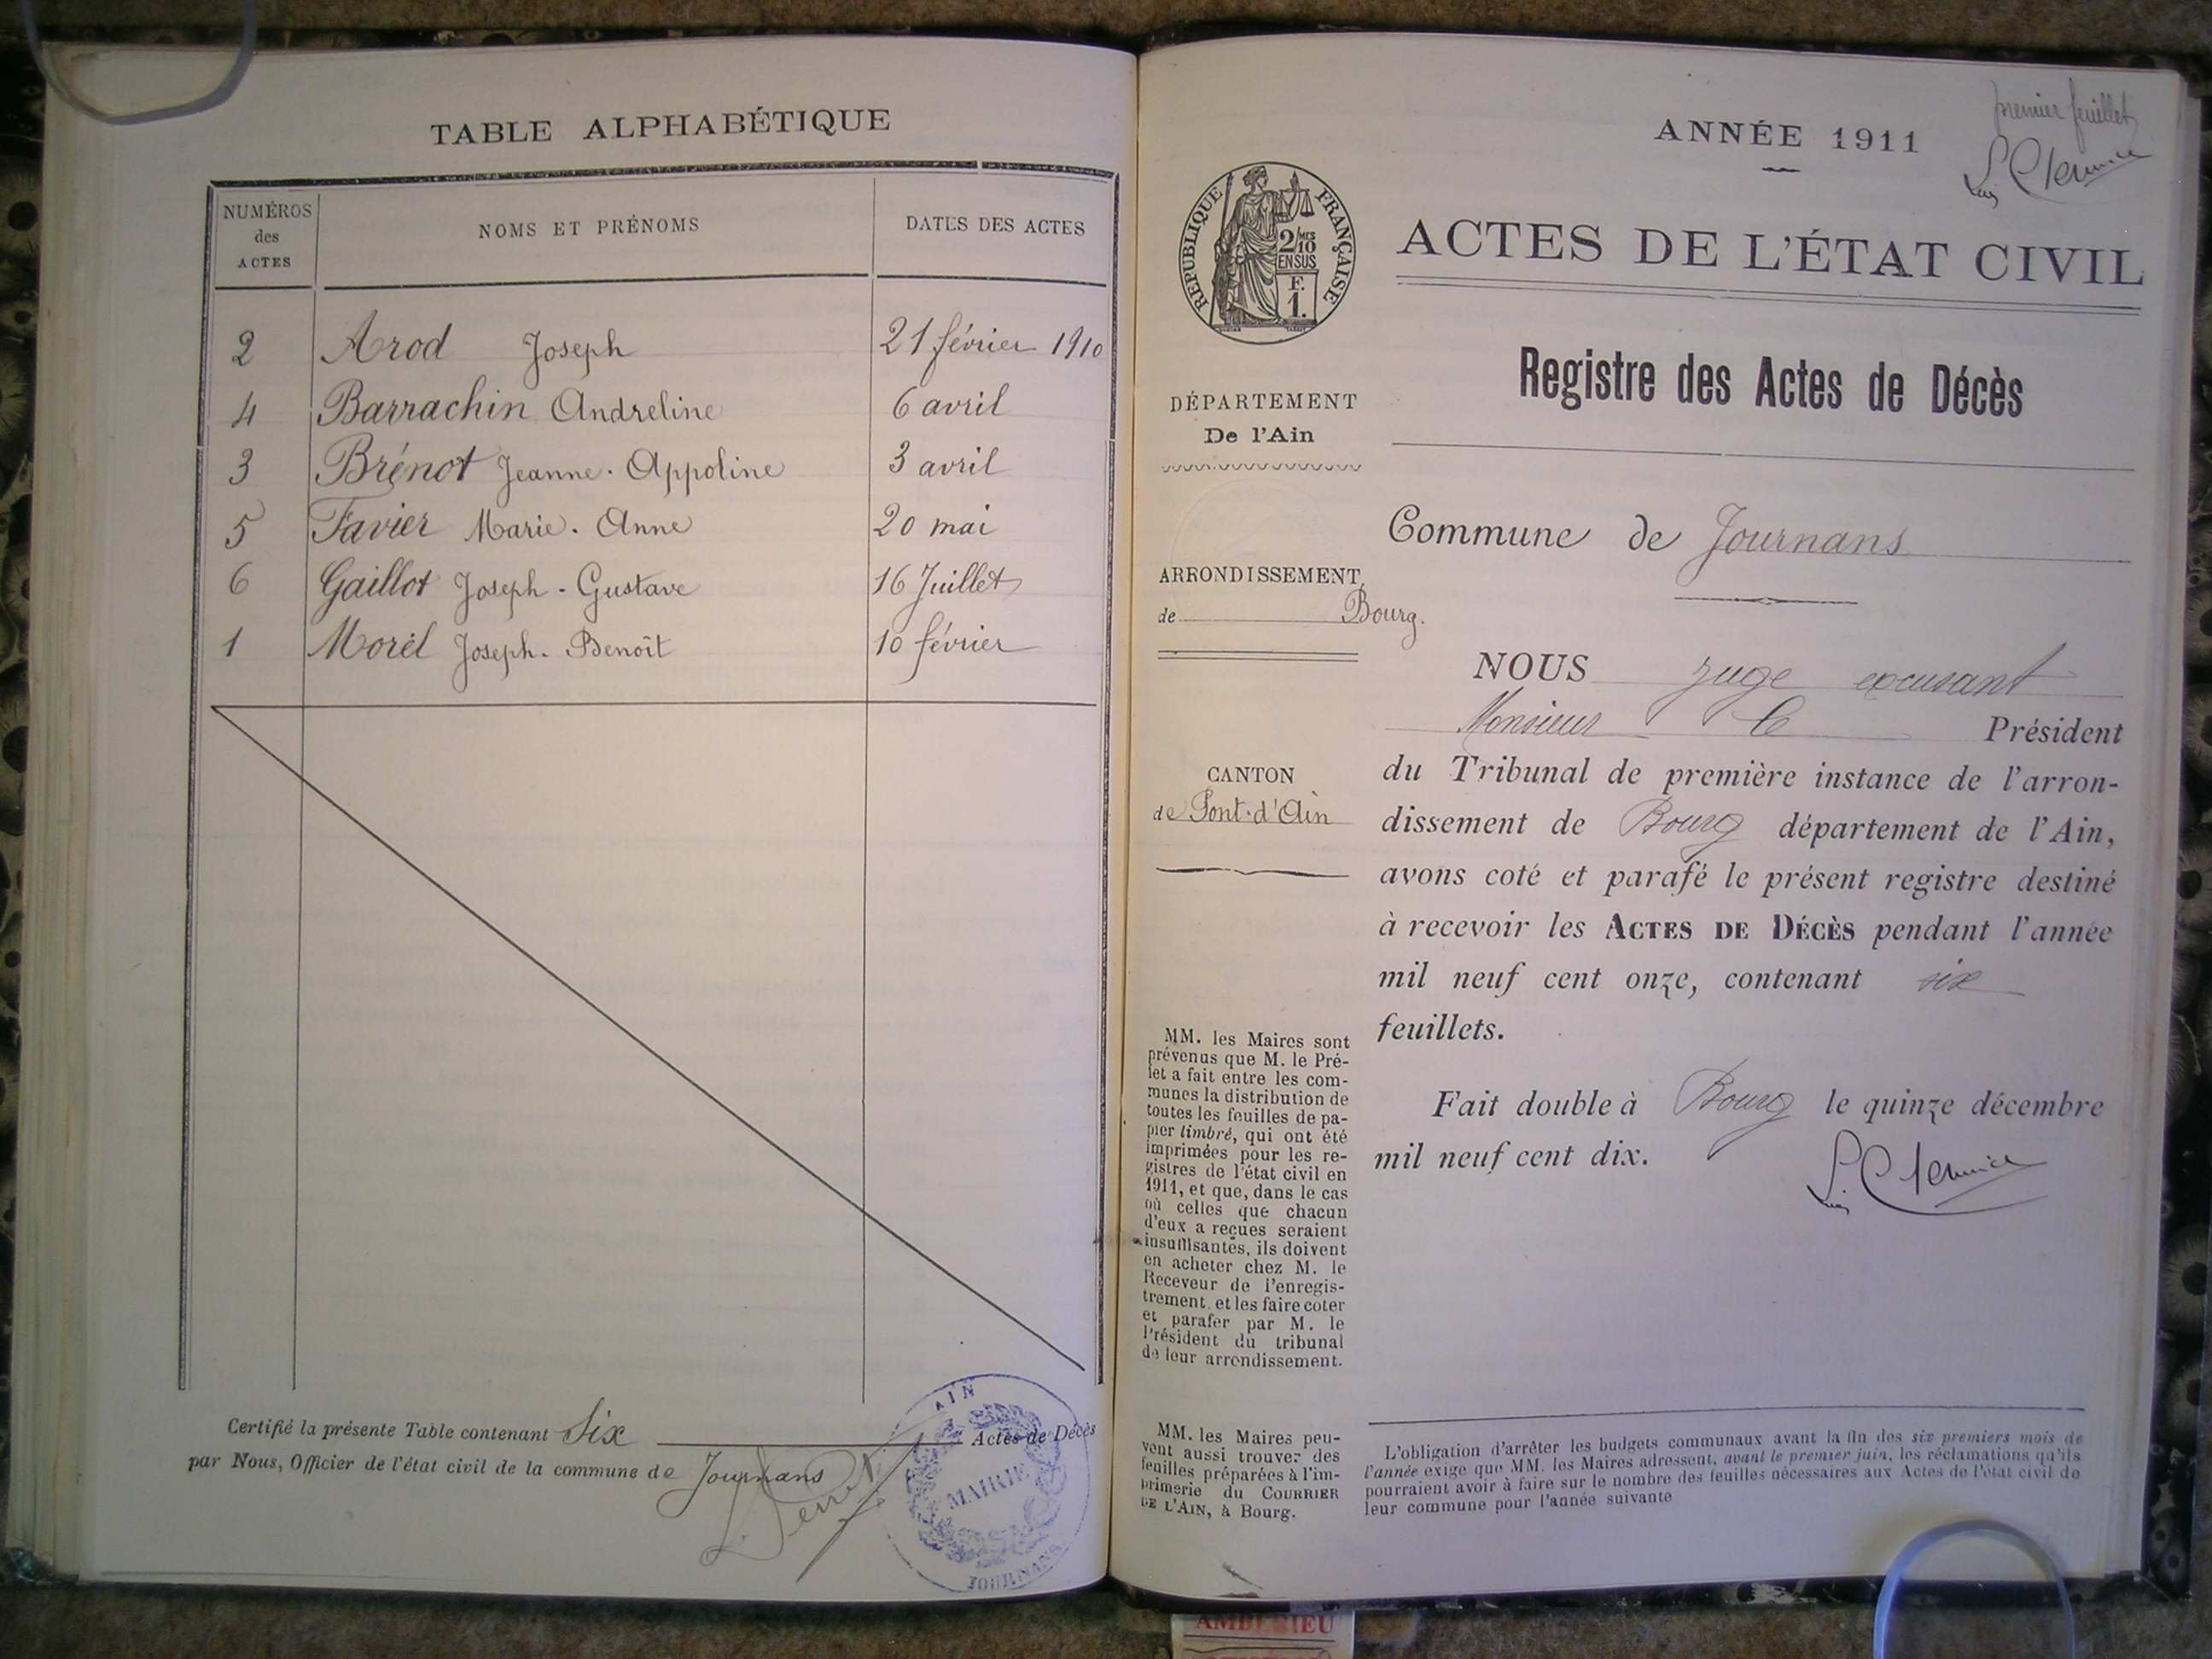 TABLE ALPHABÉTIQUE
NUMÉROS des ACTES
NOMS ET PRÉNOMS
DATES DES ACTES
2 Arod Joseph 21 février 1910
4 Barrachin Andreline 6 avril
3 Brénot Jeanne-Appoline 3 avril
5 Favier Marie-Anne 20 mai
6 Gaillot Joseph-Gustave 16 Juillet
1 Morel Joseph-Benoît 10 février
Certifié la présente Table contenant Six Actes de Décès
par Nous, Officier de l'état civil de la commune de Journans
AIN
MAIRIE
JOURNANS
premier feuillet
ANNÉE 1911
RÉPUBLIQUE FRANÇAISE
2/MES
10
EN SUS
F.
1.
ACTES DE L'ÉTAT CIVIL
Registre des Actes de Décès
DÉPARTEMENT
De l'Ain
Commune de Journans
ARRONDISSEMENT
de Bourg.
NOUS Juge excusant
Monsieur le Président
CANTON
de Pont-d'Ain
du Tribunal de première instance de l'arron-
dissement de Bourg département de l'Ain,
avons coté et parafé le présent registre destiné
à recevoir les ACTES DE DÉCÈS pendant l'année
mil neuf cent onze, contenant six
feuillets.
Fait double à Bourg le quinze décembre
mil neuf cent dix.
MM. les Maires sont
prévenus que M. le Pré-
fet a fait entre les com-
munes la distribution de
toutes les feuilles de pa-
pier timbré, qui ont été
imprimées pour les re-
gistres de l'état civil en
1911, et que, dans le cas
où celles que chacun
d'eux a reçues seraient
insuffisantes, ils doivent
en acheter chez M. le
Receveur de l'enregis-
trement, et les faire coter
et parafer par M. le
Président du tribunal
de leur arrondissement.
MM. les Maires peu-
vent aussi trouver des
feuilles préparées à l'im-
primerie du COURRIER
DE L'AIN, à Bourg.
L'obligation d'arrêter les budgets communaux avant la fin des six premiers mois de
l'année exige que MM. les Maires adressent, avant le premier juin, les réclamations qu'ils
pourraient avoir à faire sur le nombre des feuilles nécessaires aux Actes de l'état civil de
leur commune pour l'année suivante
AMBERIEU